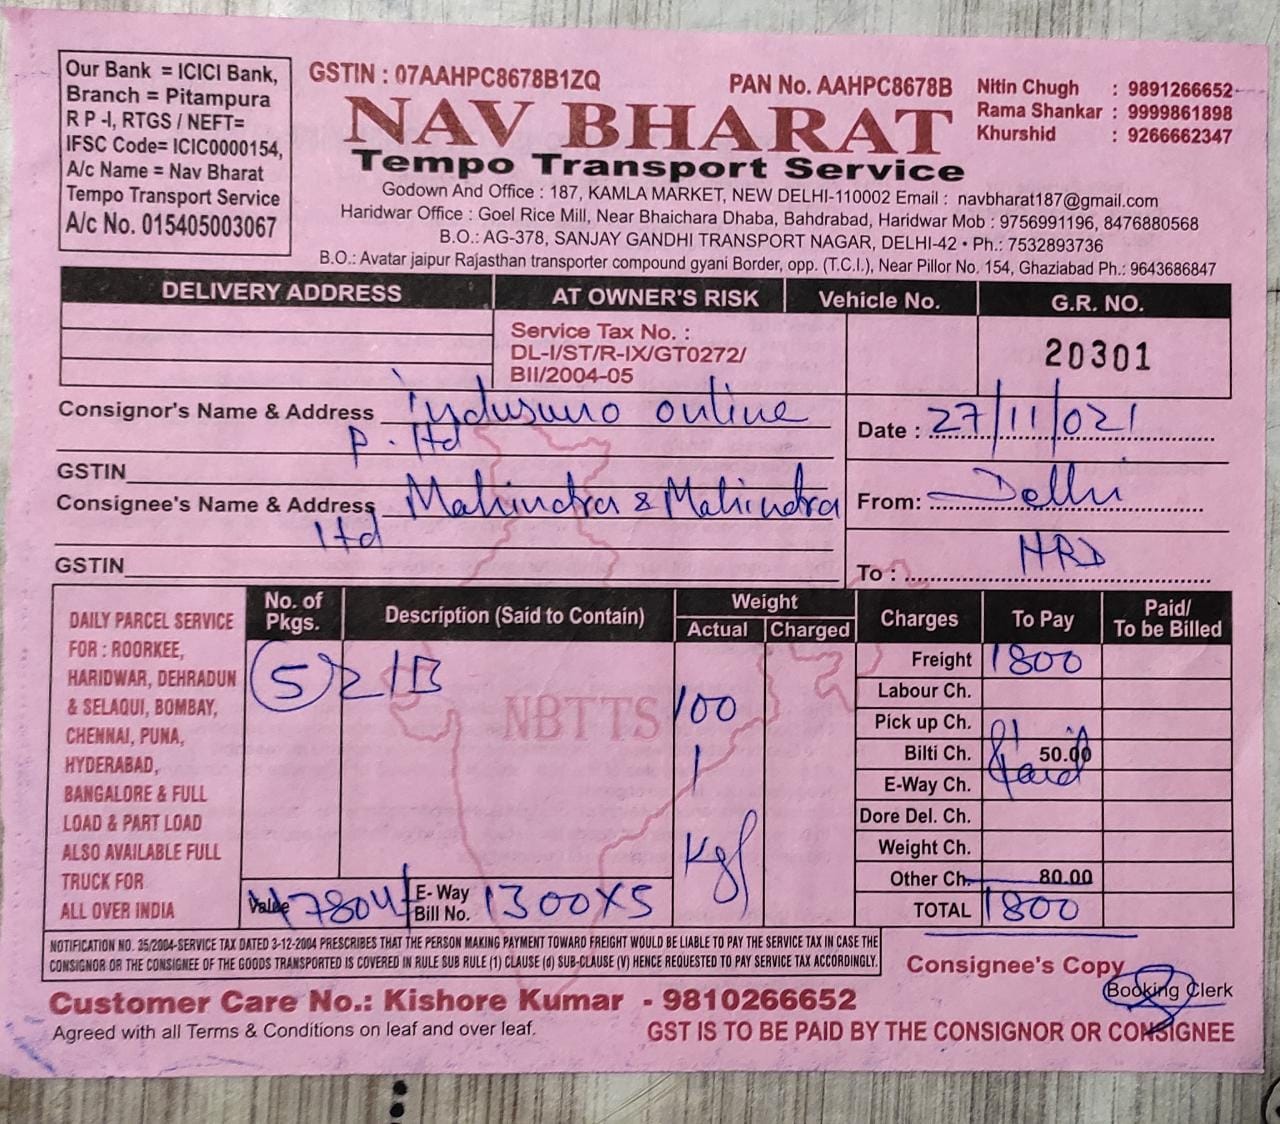 Our Bank = ICICI Bank,
Branch = Pitampura
R P -I, RTGS / NEFT=
IFSC Code= ICIC0000154,
A/c Name = Nav Bharat
Tempo Transport Service
A/c No. 015405003067
GSTIN : 07AAHPC8678B1ZQ
PAN No. AAHPC8678B
Nitin Chugh : 9891266652
Rama Shankar : 9999861898
Khurshid : 9266662347
NAV BHARAT
Tempo Transport Service
Godown And Office : 187, KAMLA MARKET, NEW DELHI-110002 Email : navbharat187@gmail.com
Haridwar Office : Goel Rice Mill, Near Bhaichara Dhaba, Bahdrabad, Haridwar Mob : 9756991196, 8476880568
B.O.: AG-378, SANJAY GANDHI TRANSPORT NAGAR, DELHI-42 • Ph.: 7532893736
B.O.: Avatar jaipur Rajasthan transporter compound gyani Border, opp. (T.C.I.), Near Pillor No. 154, Ghaziabad Ph.: 9643686847
DELIVERY ADDRESS AT OWNER'S RISK Vehicle No. G.R. NO.
Service Tax No. :
DL-I/ST/R-IX/GT0272/
BII/2004-05
20301
Consignor's Name & Address online
P. ltd
Date : 27/11/021
GSTIN
Consignee's Name & Address Mahindra & Mahindra
ltd
From: Delhi
GSTIN
To : HRD
DAILY PARCEL SERVICE
FOR : ROORKEE,
HARIDWAR, DEHRADUN
& SELAQUI, BOMBAY,
CHENNAI, PUNA,
HYDERABAD,
BANGALORE & FULL
LOAD & PART LOAD
ALSO AVAILABLE FULL
TRUCK FOR
ALL OVER INDIA
No. of Pkgs. Description (Said to Contain) Weight
Actual Charged
5
100
Kgs
NBTTS
Value
E-Way
Bill No. 1300X5
Charges To Pay Paid/
To be Billed
Freight 1800
Labour Ch.
Pick up Ch.
Bilti Ch. 50.00
Paid
E-Way Ch.
Dore Del. Ch.
Weight Ch.
Other Ch. 80.00
TOTAL 1800
NOTIFICATION NO. 35/2004-SERVICE TAX DATED 3-12-2004 PRESCRIBES THAT THE PERSON MAKING PAYMENT TOWARD FREIGHT WOULD BE LIABLE TO PAY THE SERVICE TAX IN CASE THE
CONSIGNOR OR THE CONSIGNEE OF THE GOODS TRANSPORTED IS COVERED IN RULE SUB RULE (1) CLAUSE (d) SUB-CLAUSE (V) HENCE REQUESTED TO PAY SERVICE TAX ACCORDINGLY.
Consignee's Copy
Booking Clerk
Customer Care No.: Kishore Kumar - 9810266652
Agreed with all Terms & Conditions on leaf and over leaf.
GST IS TO BE PAID BY THE CONSIGNOR OR CONSIGNEE